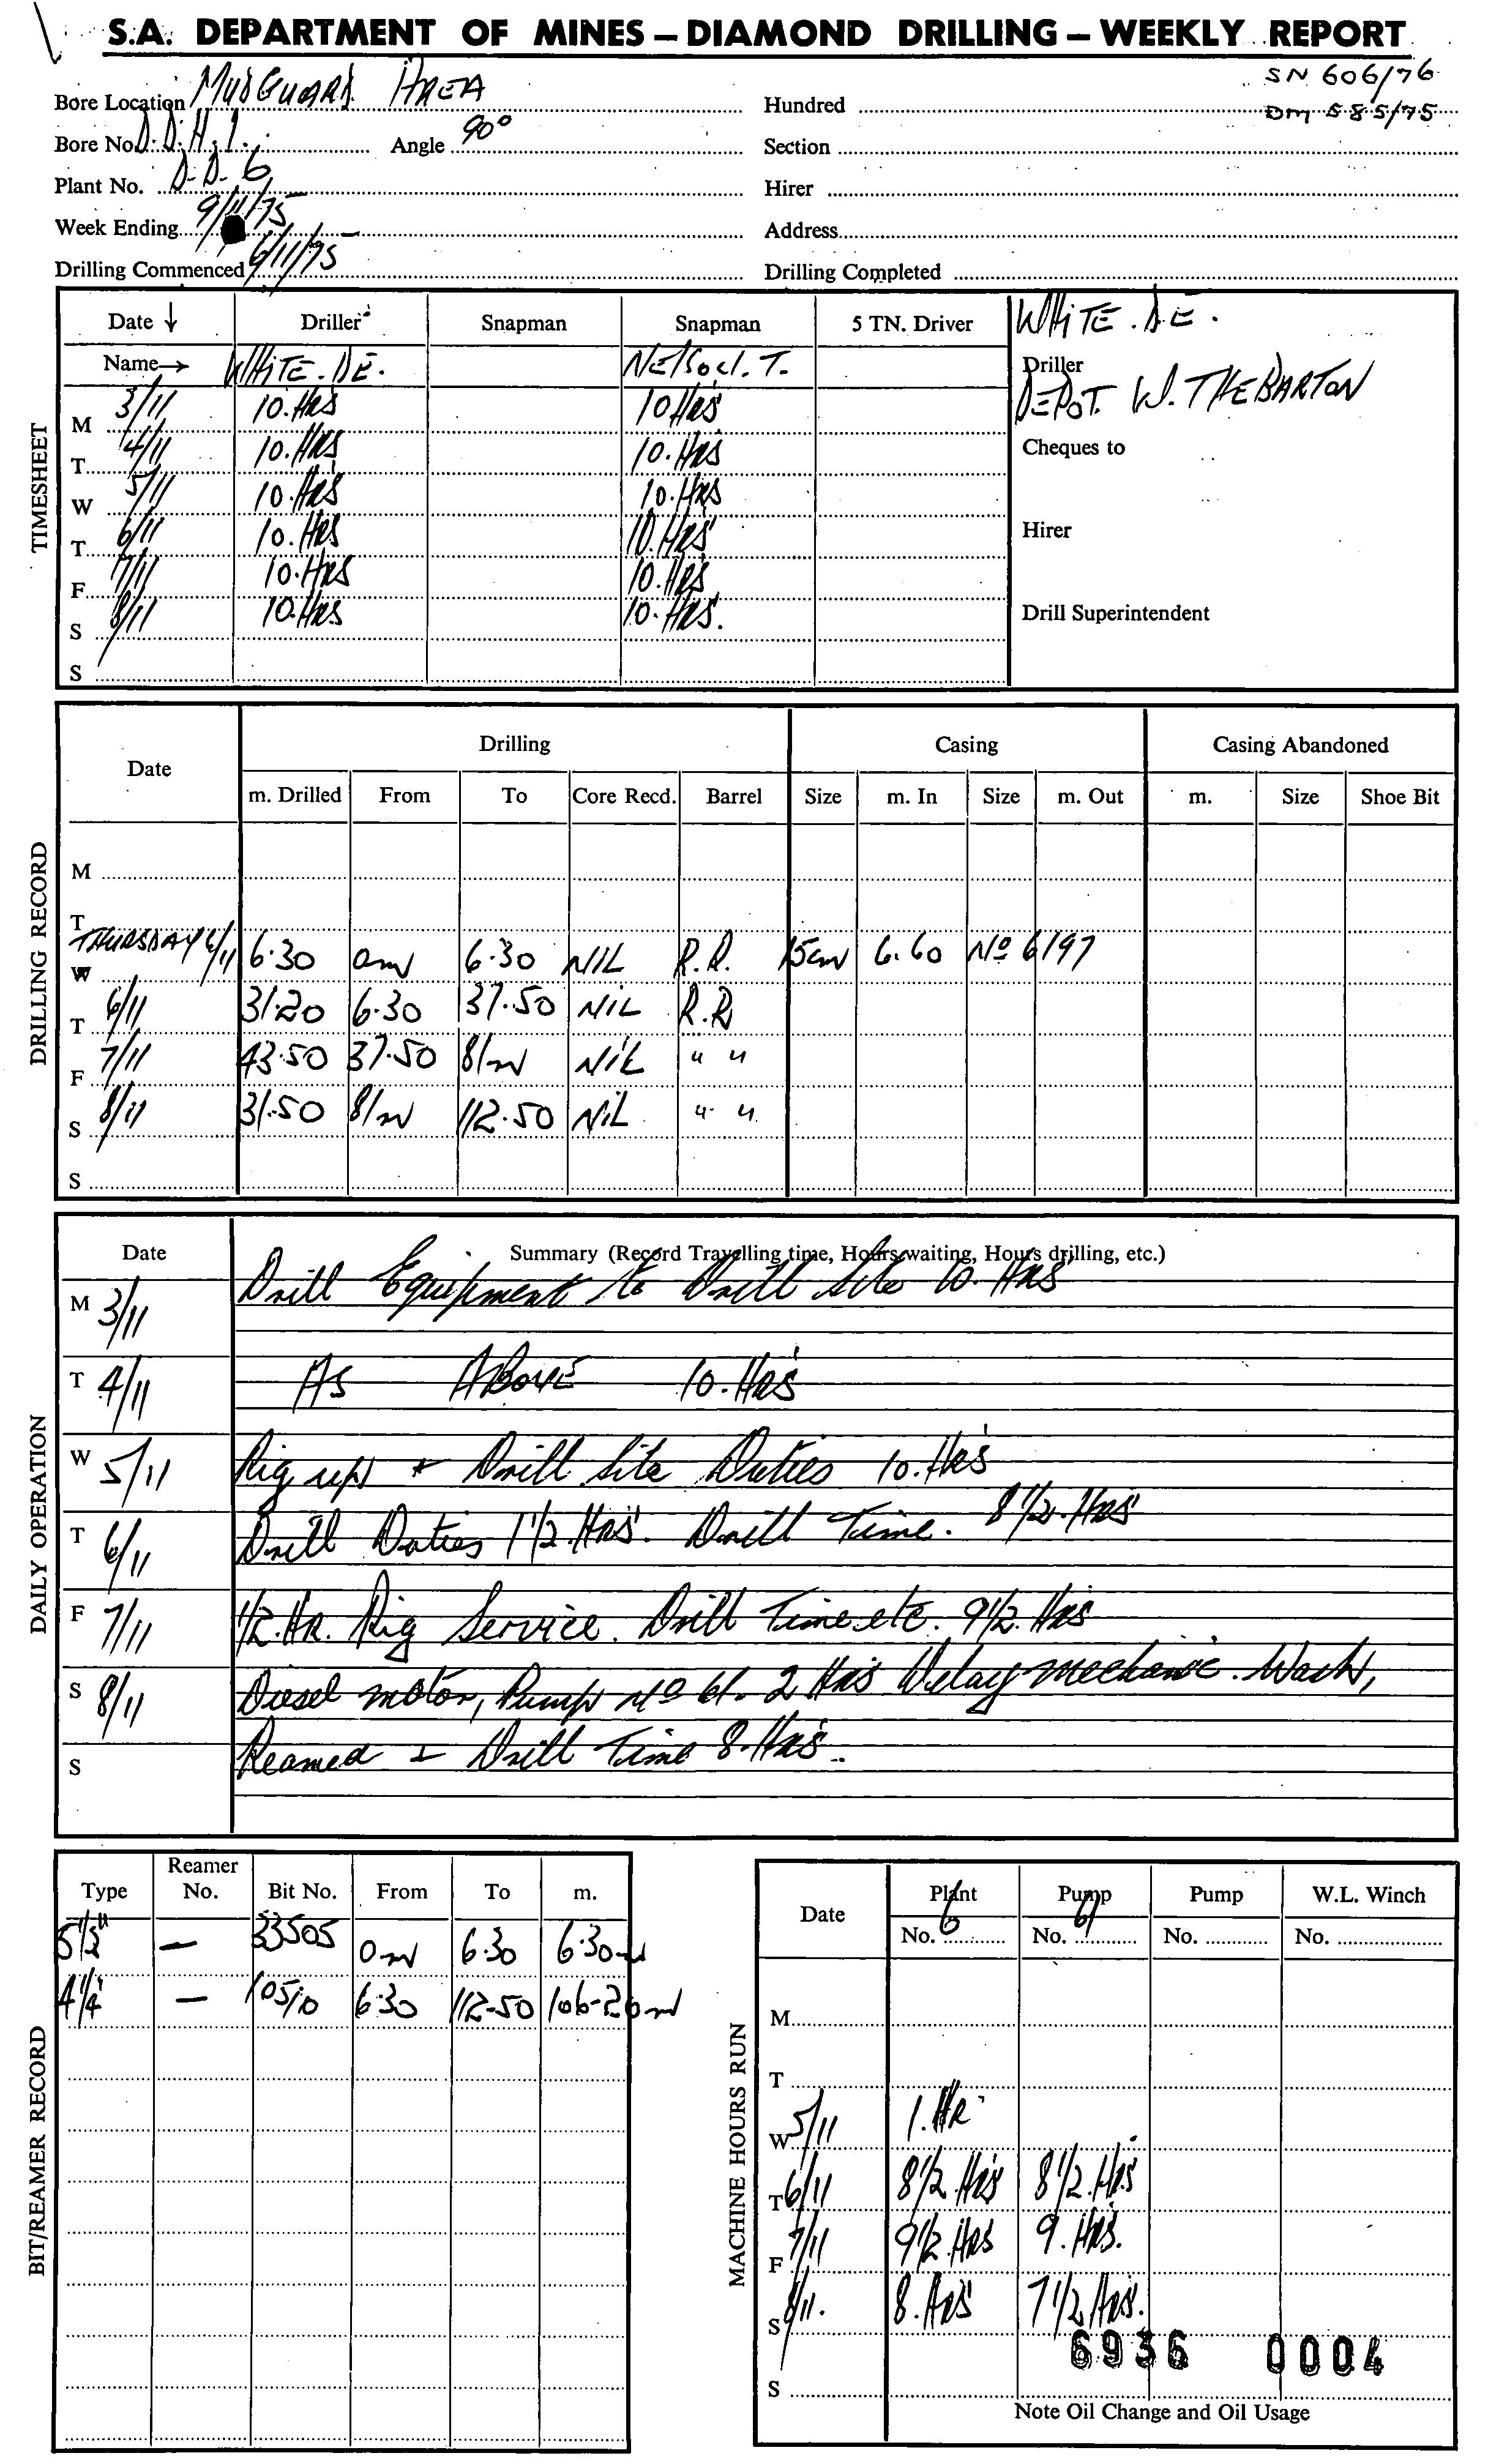 S.A. DEPARTMENT OF MINES – DIAMOND DRILLING – WEEKLY REPORT
SN 606/76
DM 585/75
Bore Location MUDGUARD AREA Hundred
Bore No. D.D.H.1. Angle 90° Section
Plant No. D.D.6 Hirer
Week Ending 9/11/75 Address
Drilling Commenced 6/11/75 Drilling Completed
TIMESHEET
Date ↓ Driller Snapman Snapman 5 TN. Driver WHITE. D.E.
Name→ WHITE. D.E. T. Driller
M 3/11 10.HRS 10HRS DEPOT. W. THEBARTON
T 4/11 10.HRS 10.HRS Cheques to
W 5/11 10.HRS 10.HRS
T 6/11 10.HRS 10.HRS Hirer
F 7/11 10.HRS 10.HRS
S 8/11 10.HRS 10.HRS. Drill Superintendent
S
DRILLING RECORD
Date Drilling Casing Casing Abandoned
m. Drilled From To Core Recd. Barrel Size m. In Size m. Out m. Size Shoe Bit
M
T
W THURSDAY 6/11 6.30 0m 6.30 NIL R.R. 15cm 6.60 No 6197
T 6/11 31.20 6.30 37.50 NIL R.R
F 7/11 43.50 37.50 81m NIL " "
S 8/11 31.50 81m 112.50 NIL " "
S
DAILY OPERATION
Date Summary (Record Travelling time, Hours waiting, Hours drilling, etc.)
M 3/11 Drill Equipment to Drill Site 10.HRS
T 4/11 AS ABOVE 10.HRS
W 5/11 Rig up + Drill Site Duties 10.HRS
T 6/11 Drill Duties 1 1/2.HRS. Drill Time. 8 1/2.HRS
F 7/11 1/2.HR. Rig Service. Drill Time etc. 9 1/2.HRS
S 8/11 Diesel motor, Pump No 61. 2 HRS Delay mechanic. Wash,
S Reamed + Drill Time 8.HRS.
BIT/REAMER RECORD
Type Reamer No. Bit No. From To m.
5 1/2" — 33505 0m 6.30 6.30m
4 1/4" — 105/10 6.30 112.50 106-20m
MACHINE HOURS RUN
Date Plant Pump Pump W.L. Winch
No. 6 No. 61 No. No.
M
T
W 5/11 1.HR
T 6/11 8 1/2.HRS 8 1/2.HRS
F 7/11 9 1/2.HRS 9.HRS.
S 8/11. 8.HRS 7 1/2 HRS.
6936 0004
S
Note Oil Change and Oil Usage